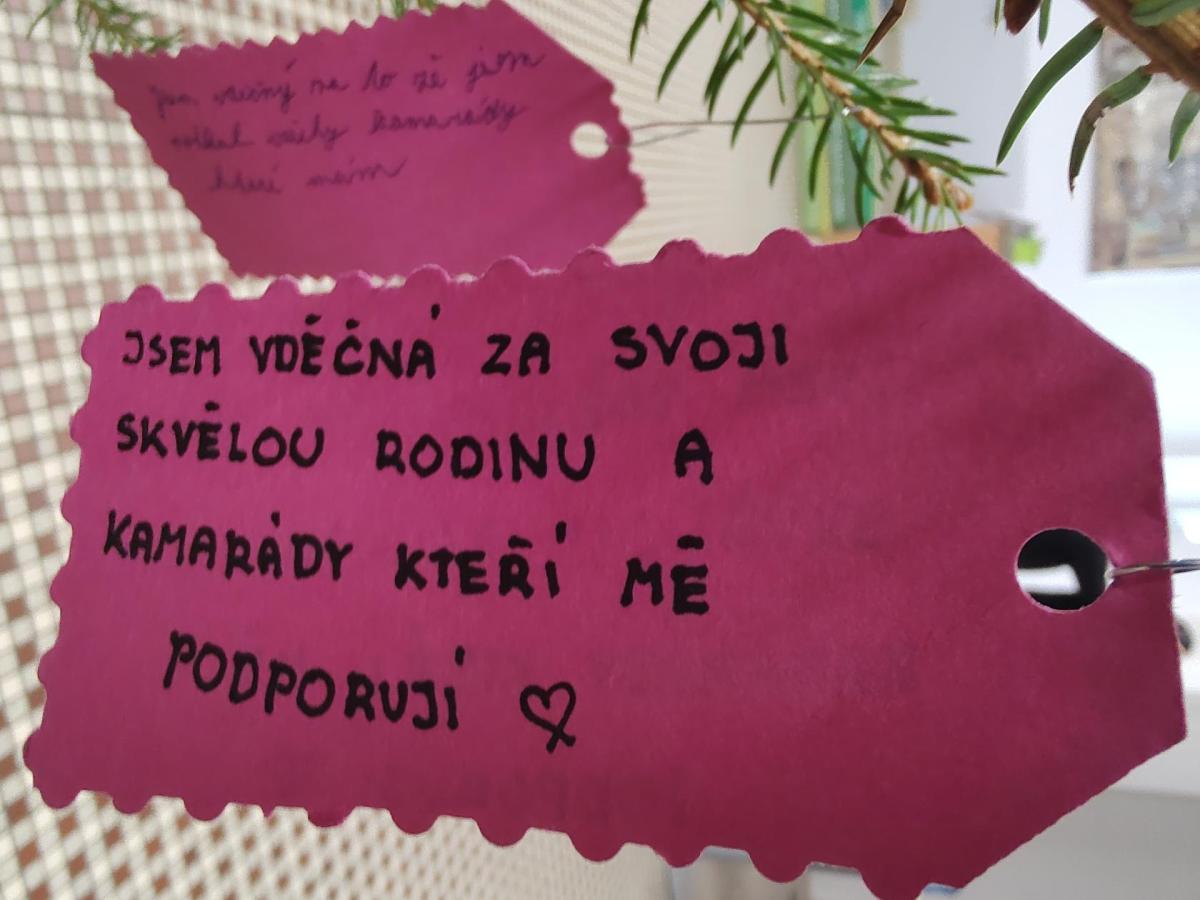 jsem vděčný na to že jsem
potkal všechny kamarády
které mám
JSEM VDĚČNÁ ZA SVOJI
SKVĚLOU RODINU A
KAMARÁDY KTEŘÍ MĚ
PODPORUJÍ ♡